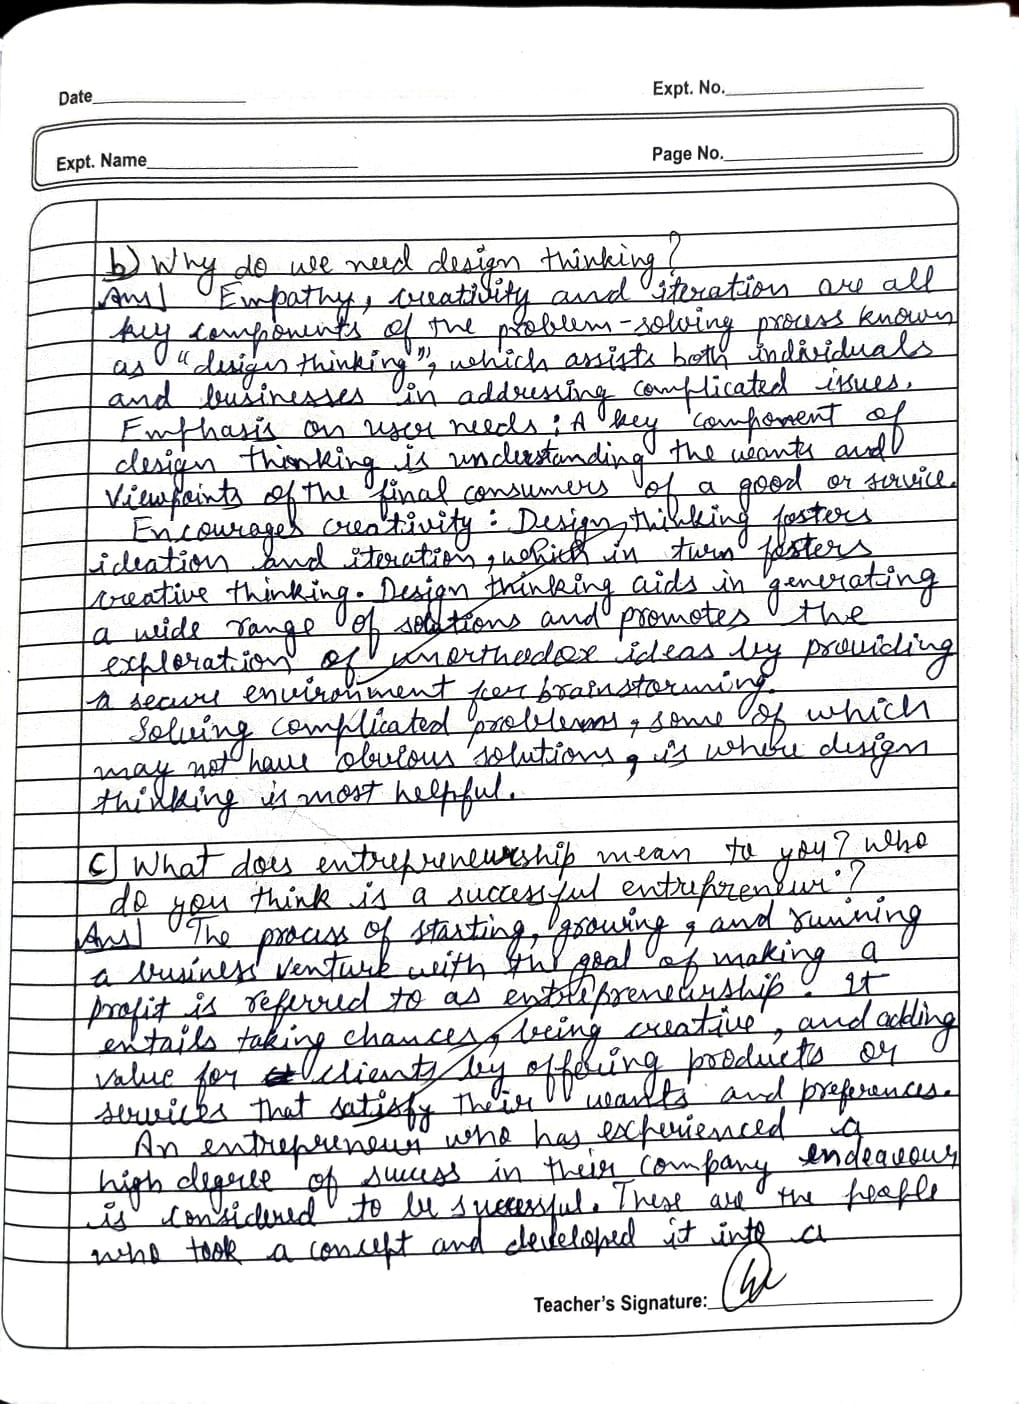 Date
Expt. No.
Expt. Name
Page No.
b) Why do we need design thinking?
Ans] Empathy, creativity and iteration are all
key components of the problem-solving process known
as "design thinking", which assists both individuals
and businesses in addressing complicated issues.
Emphasis on user needs : A key component of
design thinking is understanding the wants and
viewpoints of the final consumers of a good or service.
Encourages creativity : Design thinking fosters
ideation and iteration, which in turn fosters
creative thinking. Design thinking aids in generating
a wide range of solutions and promotes the
exploration of unorthodox ideas by providing
a secure environment for brainstorming.
Solving complicated problems, some of which
may not have obvious solutions, is where design
thinking is most helpful.
c) What does entrepreneurship mean to you? Who
do you think is a successful entrepreneur?
Ans] The process of starting, growing, and running
a business venture with the goal of making a
profit is referred to as entrepreneurship. It
entails taking chances, being creative, and adding
value for clients by offering products or
services that satisfy their wants and preferences.
An entrepreneur who has experienced a
high degree of success in their company endeavour
is considered to be successful. These are the people
who took a concept and developed it into a
Teacher's Signature: